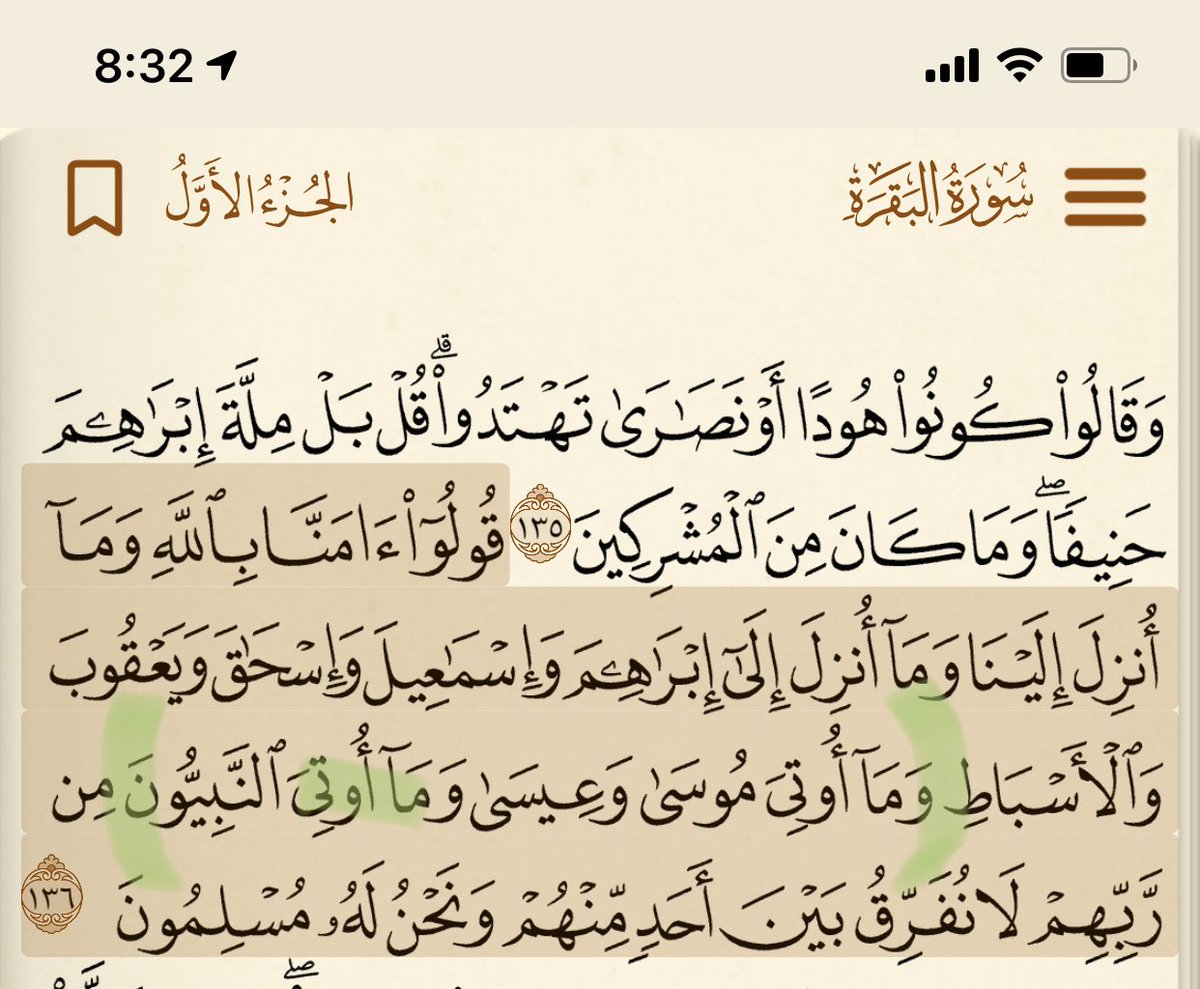 8:32
سُورَةُ البَقَرَةِ
الجُزْءُ الأَوَّلُ
وَقَالُوا۟ كُونُوا۟ هُودًا أَوْ نَصَـٰرَىٰ تَهْتَدُوا۟ ۗ قُلْ بَلْ مِلَّةَ إِبْرَٰهِـۧمَ
حَنِيفًا ۖ وَمَا كَانَ مِنَ ٱلْمُشْرِكِينَ ١٣٥ قُولُوٓا۟ ءَامَنَّا بِٱللَّهِ وَمَآ
أُنزِلَ إِلَيْنَا وَمَآ أُنزِلَ إِلَىٰٓ إِبْرَٰهِـۧمَ وَإِسْمَـٰعِيلَ وَإِسْحَـٰقَ وَيَعْقُوبَ
وَٱلْأَسْبَاطِ وَمَآ أُوتِىَ مُوسَىٰ وَعِيسَىٰ وَمَآ أُوتِىَ ٱلنَّبِيُّونَ مِن
رَّبِّهِمْ لَا نُفَرِّقُ بَيْنَ أَحَدٍ مِّنْهُمْ وَنَحْنُ لَهُۥ مُسْلِمُونَ ١٣٦